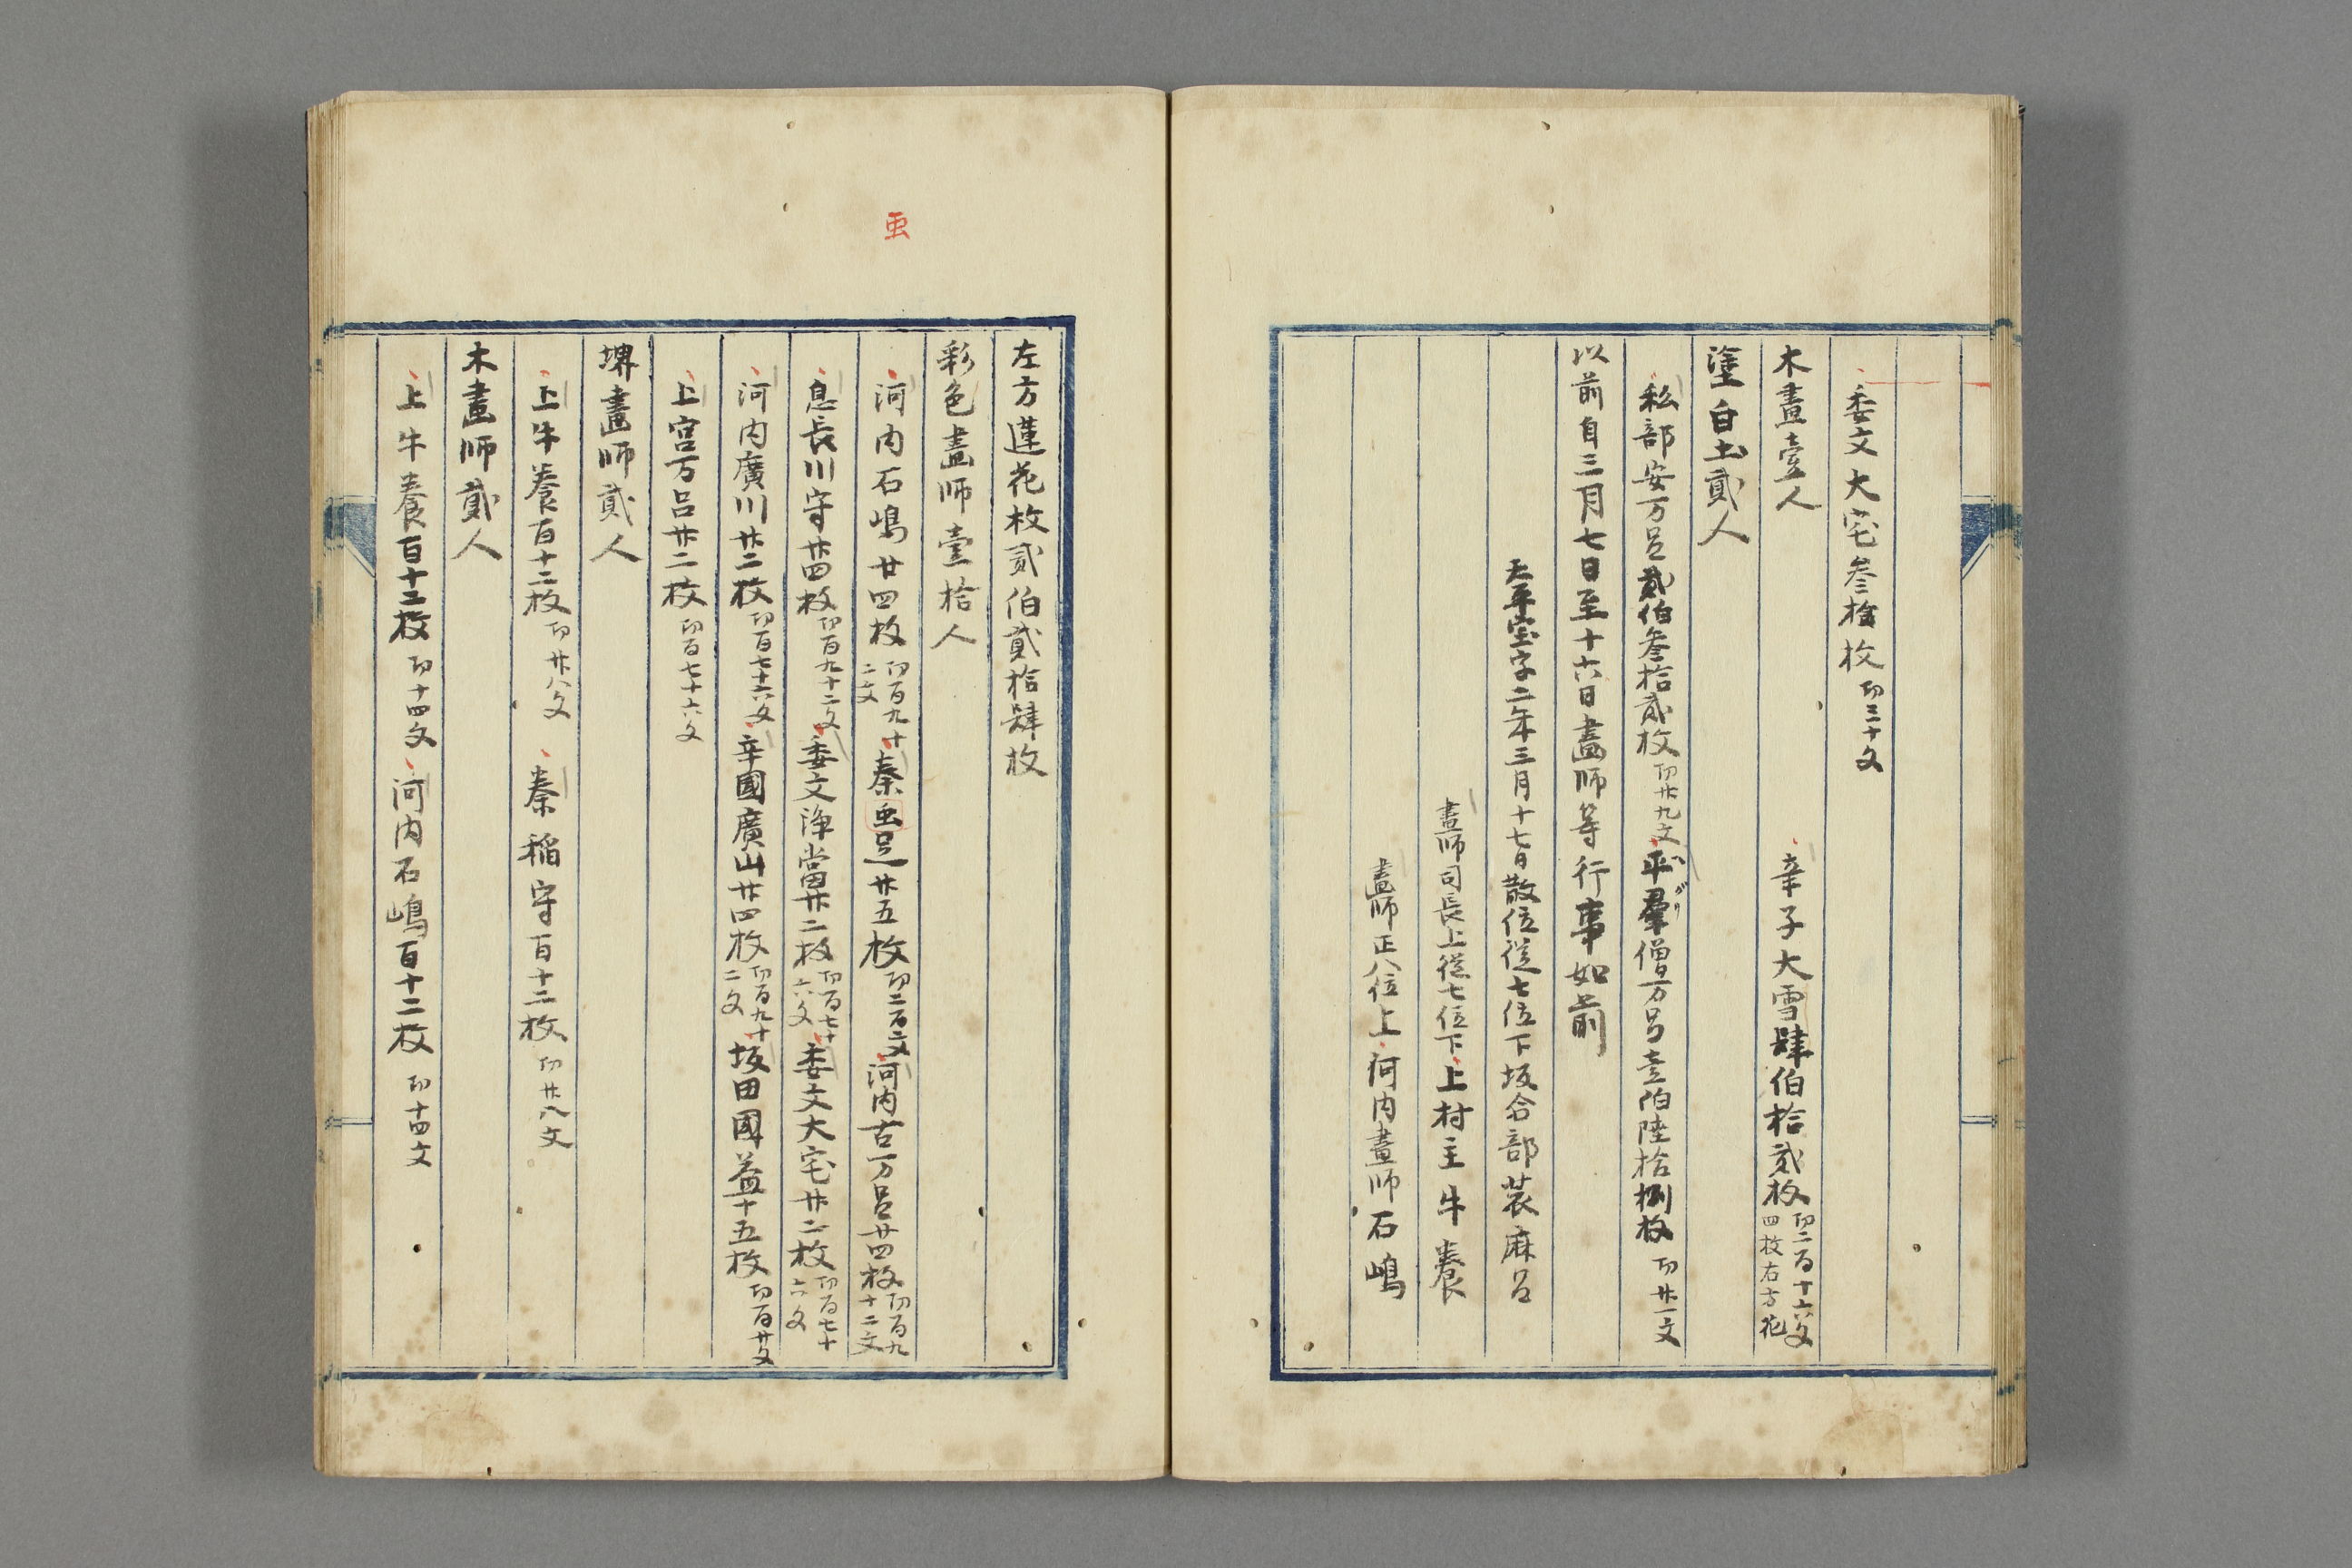 委文大宅叁拾枚 功三十文
木畫壹人
辛子大雪肆伯拾貳枚 功二百十六文 四枚右方花
塗白土貳人
私部安万呂貳伯叁拾貳枚 功廿九文 平羣僧万呂壹陌陸拾捌枚 功廿一文
以前自三月七日至十六日畫師等行事如前
天平宝字二年三月十七日散位從七位下坂合部蓑麻呂
畫師司長上從七位下上村主牛養
畫師正八位上河内畫師石嶋
虫
左方蓮花枚貳伯貳拾肆枚
彩色畫師壹拾人
河内石嶋廿四枚 功百九十二文 秦虫足廿五枚 功二百文 河内古万呂廿四枚 功百九十二文
息長川守廿四枚 功百九十二文 委文浄當廿二枚 功百七十六文 委文大宅廿二枚 功百七十六文
河内廣川廿二枚 功百七十六文 辛國廣山廿四枚 功百九十二文 坂田國益十五枚 功百廿文
上宮万呂廿二枚 功百七十六文
堺畫師貳人
上牛養百十二枚 功廿八文 秦稲守百十二枚 功廿八文
木畫師貳人
上牛養百十二枚 功十四文 河内石嶋百十二枚 功十四文